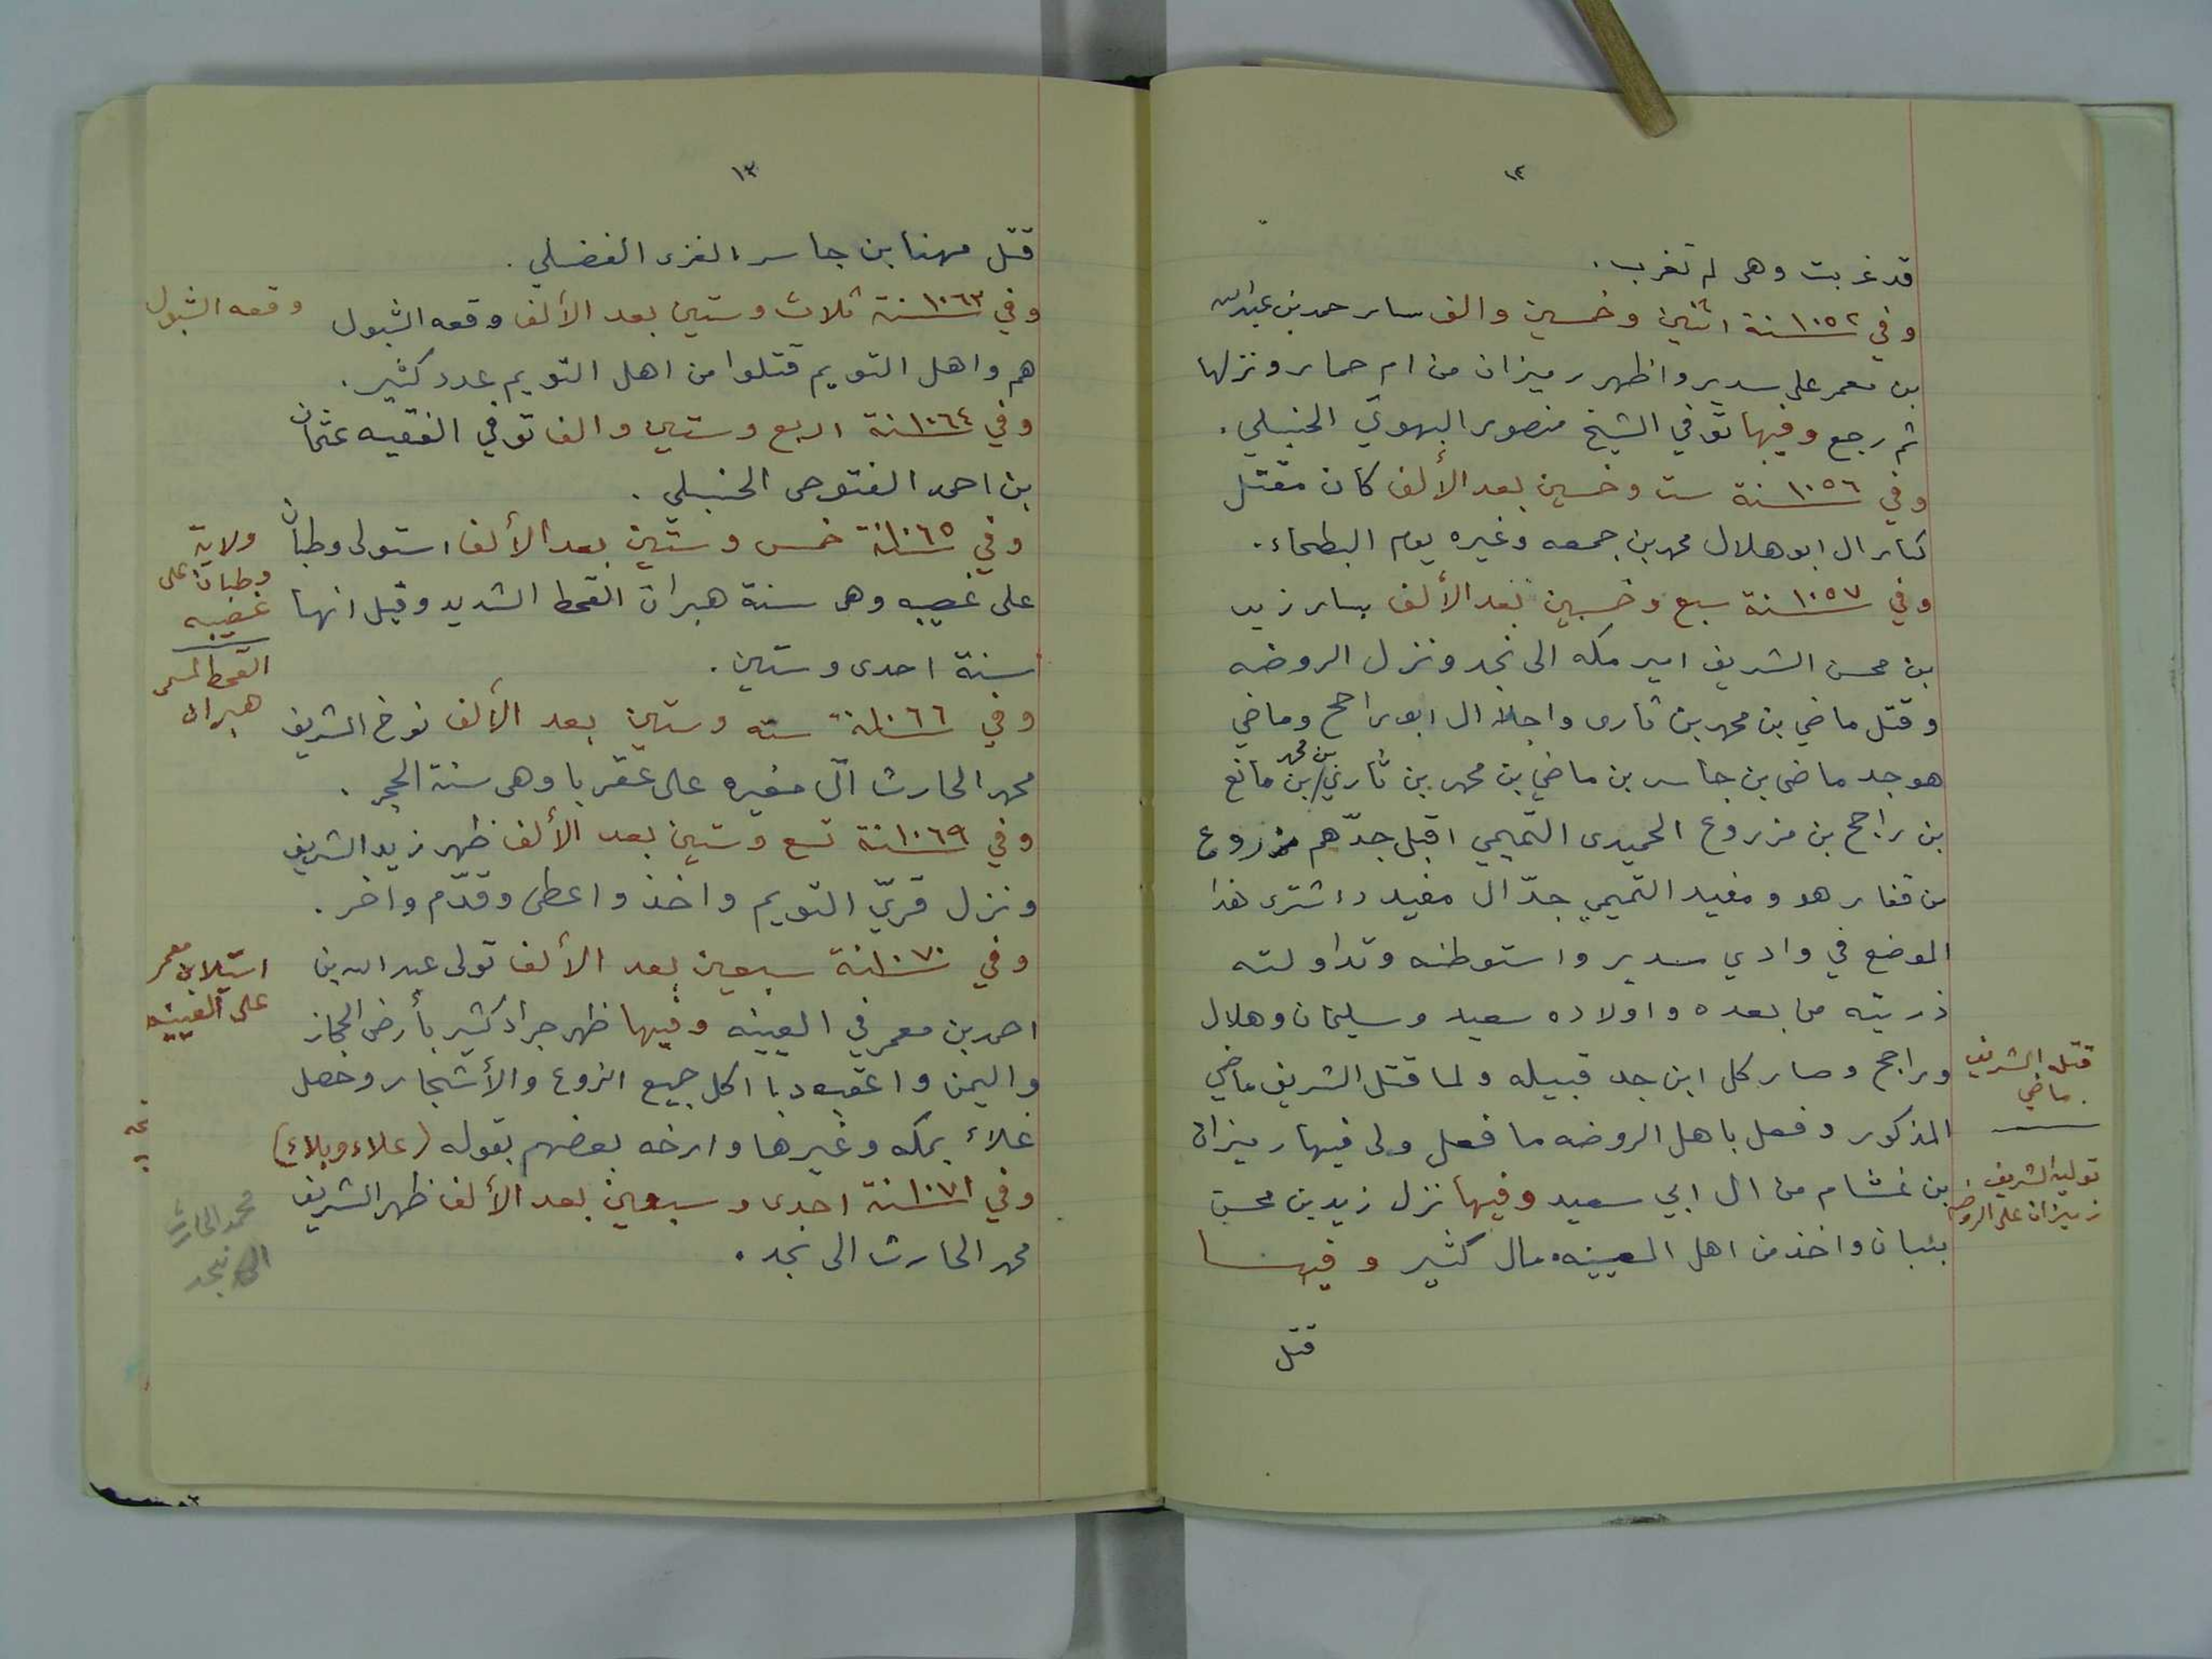 ١٢
قد غربت وهى لم تغرب.
وفي ١٠٥٢سنة اثنين وخمسين والف سار حمد بن عبدالله
بن معمر على سدير واظهر رميزان من ام حمار ونزلها
ثم رجع وفيها توفي الشيخ منصور البهوتي الحنبلي.
وفي ١٠٥٦سنة ست وخمسين بعد الألف كان مقتل
كبار ال ابو هلال محمد بن جمعه وغيره يوم البطحاء.
وفي ١٠٥٧سنة سبع وخمسين بعد الألف سار زيد
بن محسن الشريف امير مكه الى نجد ونزل الروضه
وقتل ماضي بن محمد بن ثارى واجلا ال ابو راجح وماضي
هو جد ماضى بن جاسر بن ماضي بن محمد بن ثاري بن محمد بن مانع
بن راجح بن مزروع الحميدى التميمي اقبل جدّهم مزروع
من قفار هو ومفيد التميمي جدّ ال مفيد واشترى هذا
الموضع في وادي سدير واستوطنه وتداولته
ذريته من بعده واولاده سعيد وسليمان وهلال
وراجح وصار كل ابن جد قبيله ولما قتل الشريف ماضي
المذكور وفعل باهل الروضه ما فعل ولى فيها رميزان
بن غشام من ال ابي سعيد وفيها نزل زيد بن محسن
بنبان واخذ من اهل العيينه مال كثير وفيها
قتل
قتل الشريف
ماضي
توليه الشريف
رميزان على الروضه
١٣
قتل مهنا بن جاسر الغزى الفضلي.
وفي ١٠٦٣سنة ثلاث وستين بعد الألف وقعه الشبول
هم واهل التويم قتلوا من اهل التويم عدد كثير.
وفي ١٠٦٤سنة اربع وستين والف توفي الفقيه عثمان
بن احمد الفتوحى الحنبلي.
وفي ١٠٦٥سنة خمس وستين بعد الألف استولى وطبان
على غصيبه وهى سنة هبران القحط الشديد وقيل انها
سنة احدى وستين.
وفي ١٠٦٦سنة سته وستين بعد الألف نوخ الشريف
محمد الحارث آل مغيره على عقربا وهى سنة الحجر.
وفي ١٠٦٩سنة تسع وستين بعد الألف ظهر زيد الشريف
ونزل قريّ التويم واخذ واعطى وقدّم واخر.
وفي ١٠٧٠سنة سبعين بعد الألف تولى عبد الله بن
احمد بن معمر في العيينه وفيها ظهر جراد كثير بأرض الحجاز
واليمن واعقبه دبا اكل جميع الزروع والأشجار وحصل
غلاء بمكه وغيرها وارخه بعضهم بقوله (غلاء وبلاء)
وفي ١٠٧١سنة احدى وسبعين بعد الألف ظهر الشريف
محمد الحارث الى نجد.
وقعه الشبول
ولاية
وطبان على
غصيبه
القحط المسمى
هبران
استيلا بن معمر
على العيينه
محمد الحارث
الى نجد